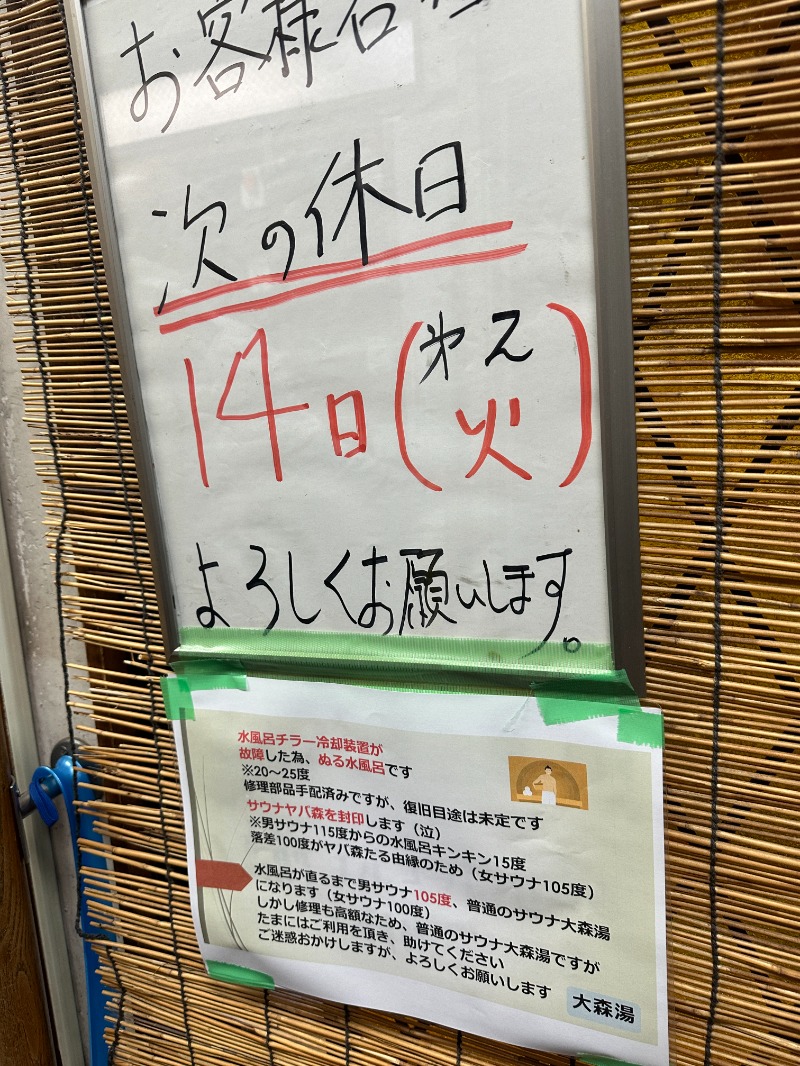 お客様各位
次の休日
14日(第2火)
よろしくお願いします。
水風呂チラー冷却装置が
故障した為、ぬる水風呂です
※20〜25度
修理部品手配済みですが、復旧目途は未定です
サウナヤバ森を封印します（泣）
※男サウナ115度からの水風呂キンキン15度
落差100度がヤバ森たる由縁のため（女サウナ105度）
水風呂が直るまで男サウナ105度、普通のサウナ大森湯
になります（女サウナ100度）
しかし修理も高額なため、普通のサウナ大森湯ですが
たまにはご利用を頂き、助けてください
ご迷惑おかけしますが、よろしくお願いします
大森湯